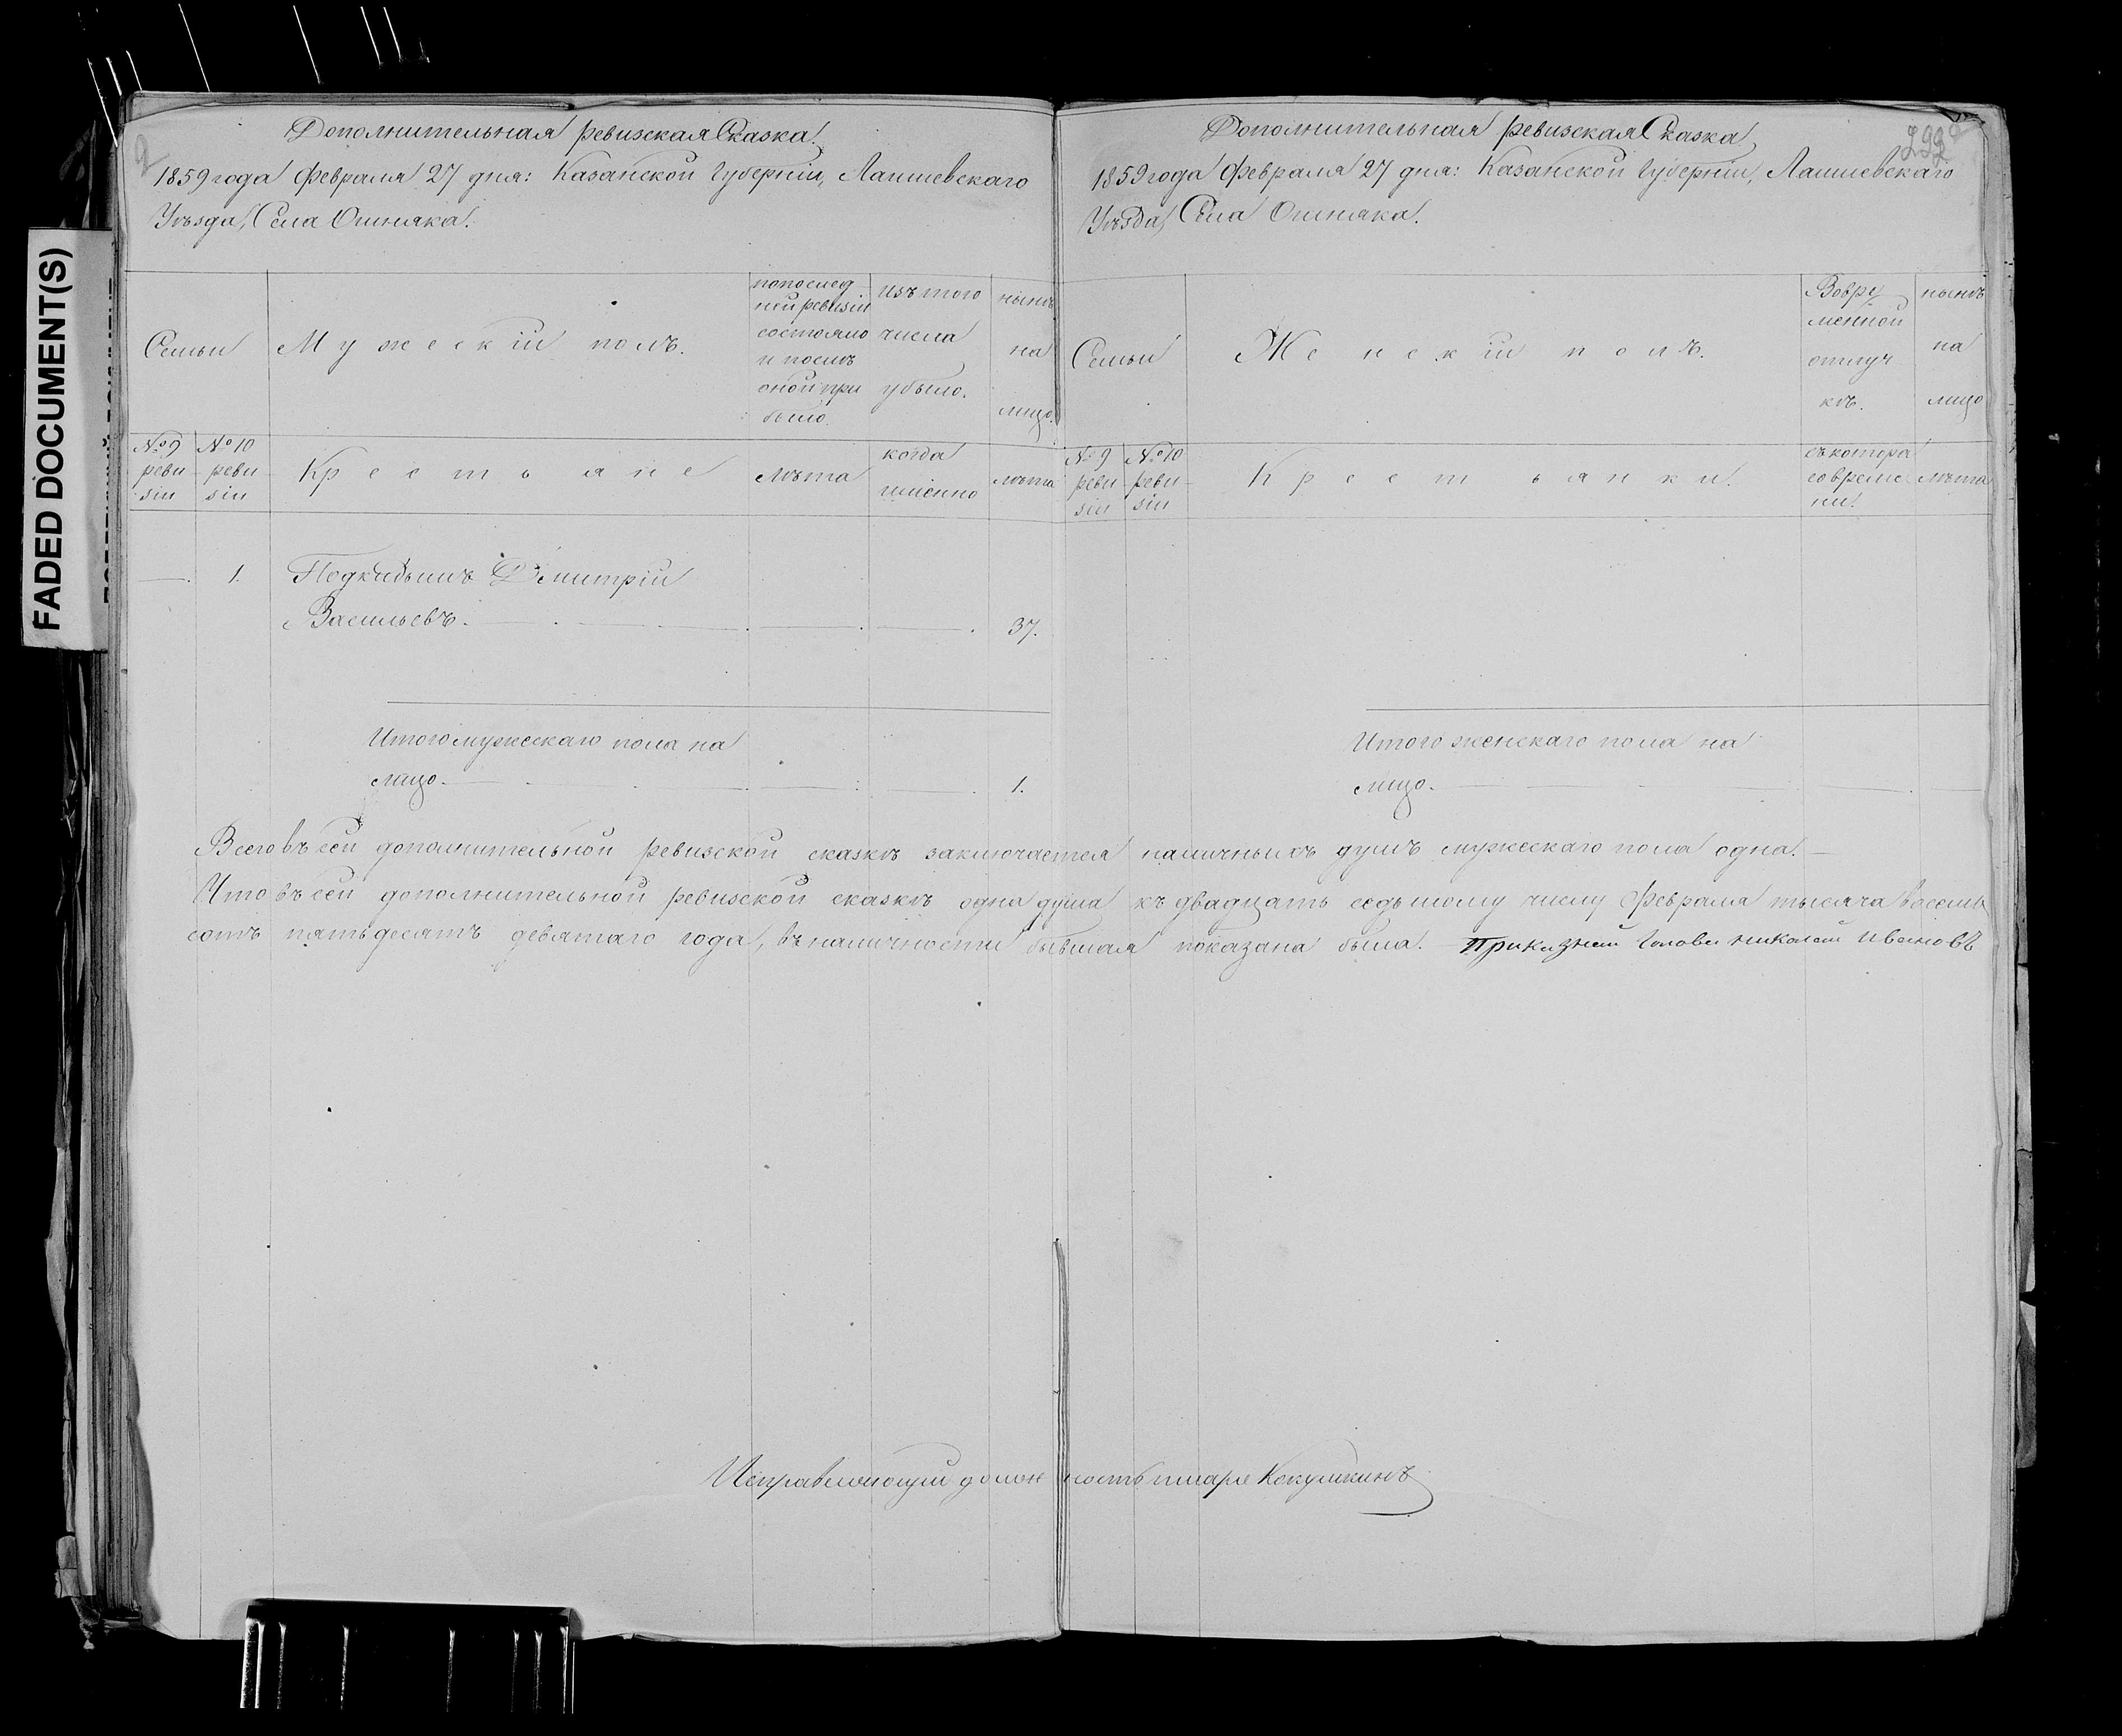 FADED DOCUMENT(S)
Дополнительная ревизская Сказка.
1859 года Февраля 27 дня: Казанской Губерніи, Лаишевскаго
Уѣзда, Села Ошняка.
Семьи
Мужескій полъ.
по послед
ней ревизіи
состояло
и послѣ
оной при
было.
изъ того
числа
убыло.
нынѣ
на
лицо.
№ 9
реви
зіи
№ 10
реви
зіи
Крестьяне
лѣта
когда
имѣнно
лѣта
1.
Подкидышъ Дмитрій
Васильевъ.
37.
Итого мужескаго пола на
лицо.
1.
Дополнительная ревизская Сказка
299
1859 года Февраля 27 дня: Казанской Губерніи, Лаишевскаго
Уѣзда, Села Ошняка.
Семьи
Женскій полъ.
Во вре
менной
отлуч
кѣ.
нынѣ
на
лицо
№ 9
реви
зіи
№ 10
реви
зіи
Крестьянки.
съ котора
со време
ни.
лѣта
Итого женскаго пола на
лицо.
Всего въ сей дополнительной ревизской сказкѣ заключается наличныхъ душъ мужескаго пола одна.
Что въ сей дополнительной ревизской сказкѣ одна душа къ двадцать седьмому числу Февраля тысяча восемь
сотъ пятьдесятъ девятаго года, въ наличности бывшая показана была. Приказнай Голова Николай Ивановъ
Исправляющій должность писаря Кокушкинъ